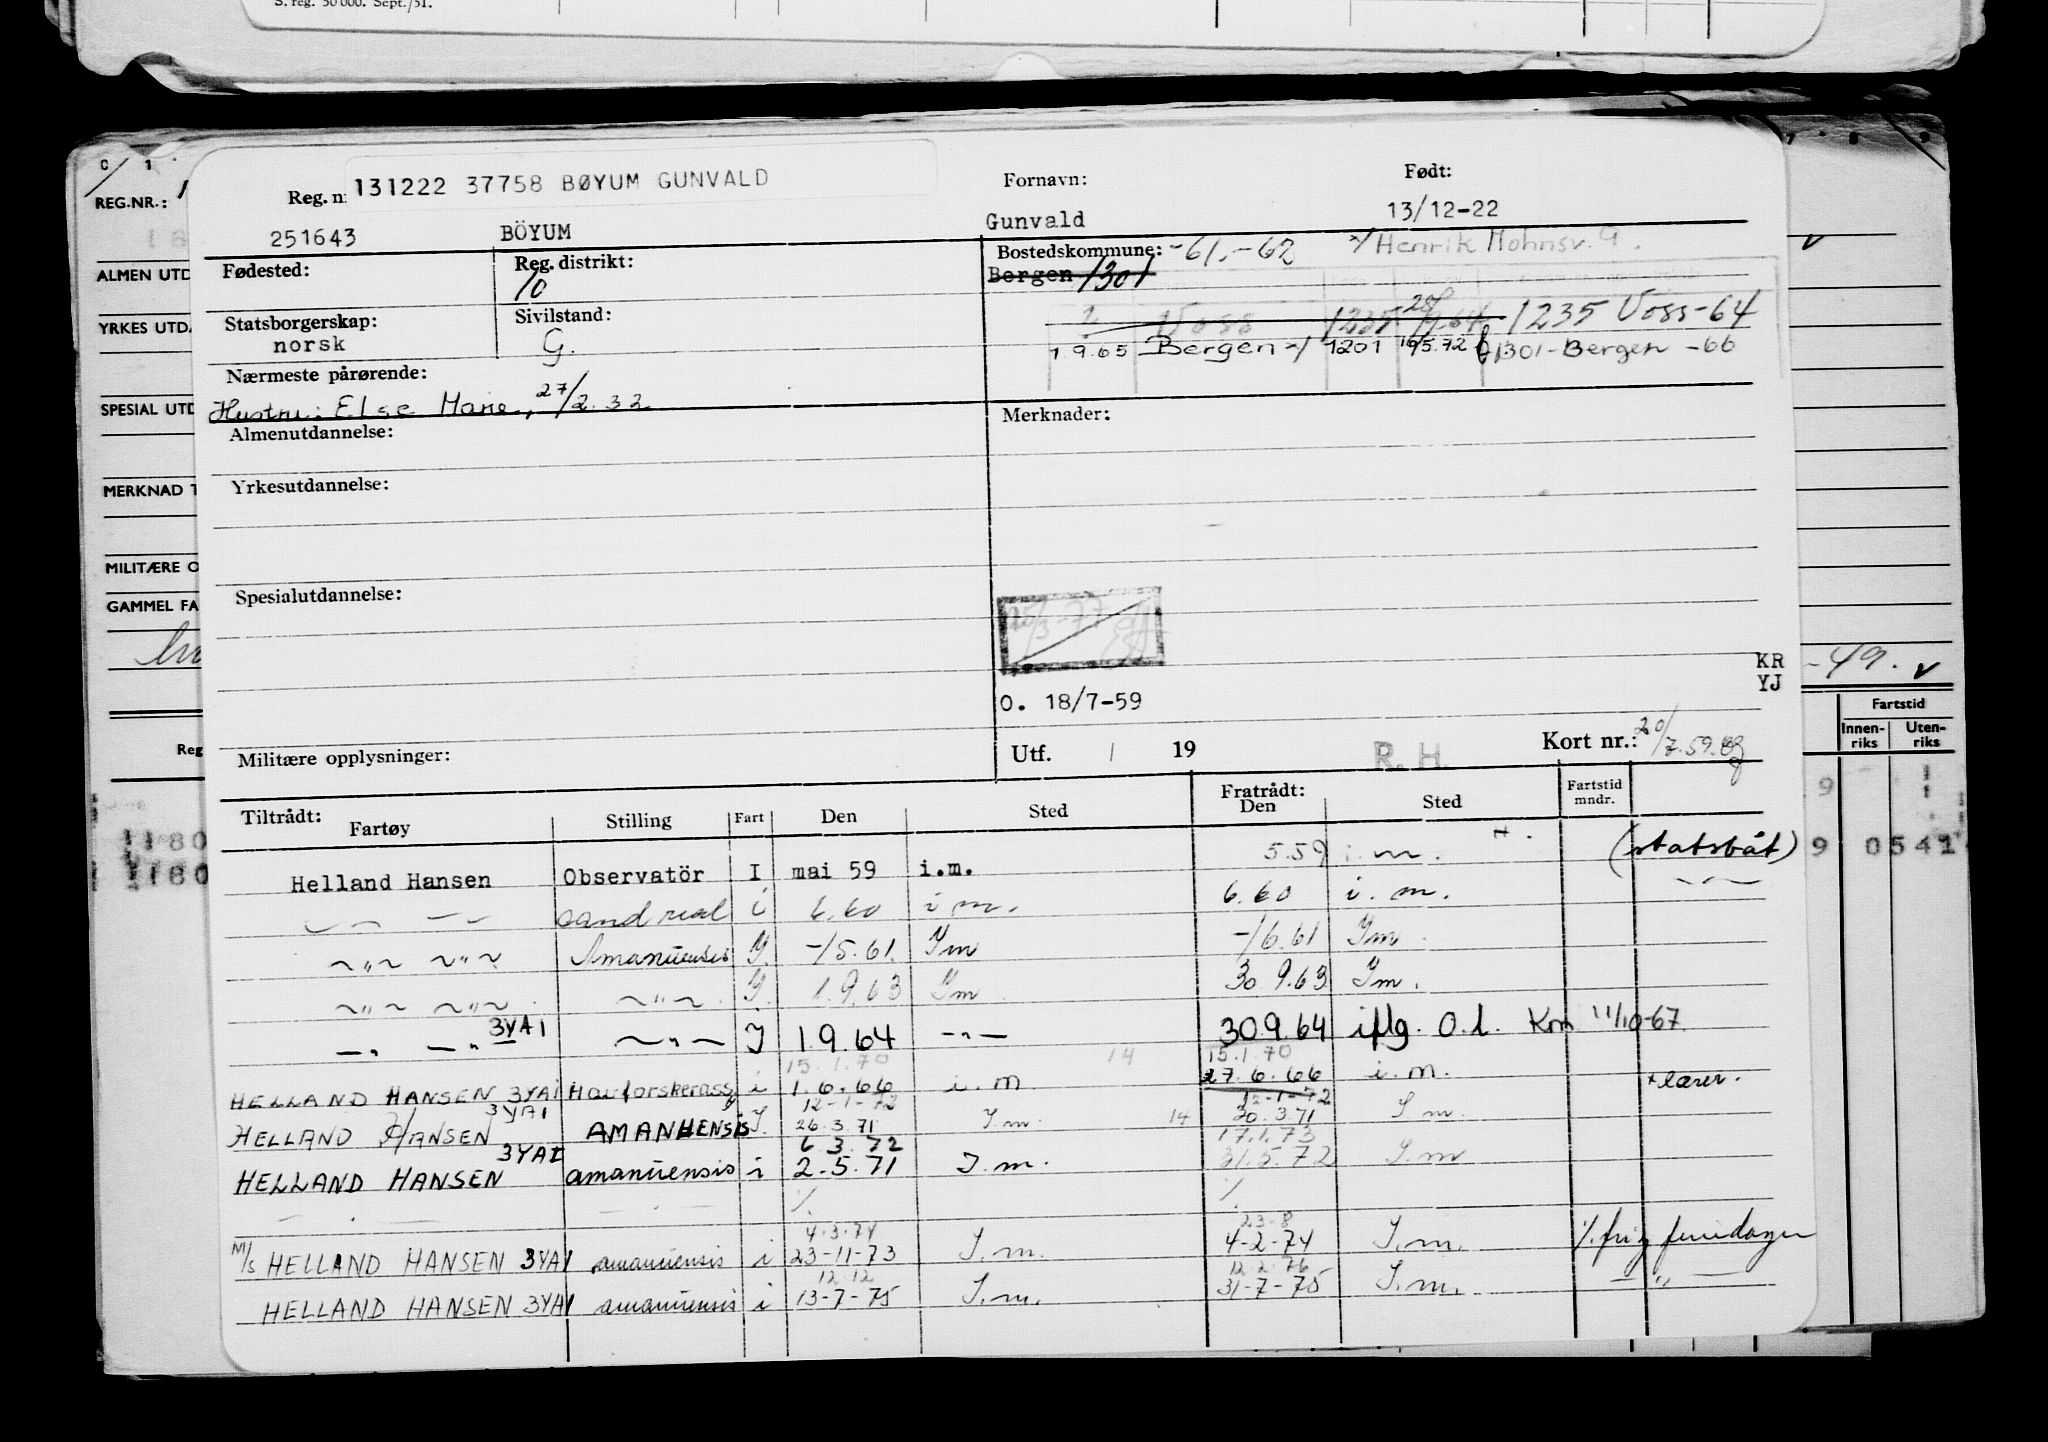 S. reg. 50 000. Sept./51.
C 1
7 8 9
REG.NR.:
ALMEN UTD
YRKES UTDA
SPESIAL UTD
MERKNAD T
MILITÆRE O
GAMMEL FA
Reg
-49. v
Fartstid
Innen-riks Uten-riks
1180
1180
9 0541
Reg. n 131222 37758 BØYUM GUNVALD Fornavn: Født:
251643 BÖYUM Gunvald 13/12-22
Fødested: Reg. distrikt: 10 Bostedskommune: -61.-62 Henrik Mohnsv. 9.
Bergen 1301
Statsborgerskap: norsk Sivilstand: G.
2 Voss 1235 1235 Voss-64
1.9.65 Bergen 1201 16/5.72 1301-Bergen -66
Nærmeste pårørende:
Hustru: Else Marie, 27/2.32
Almenutdannelse: Merknader:
Yrkesutdannelse:
Spesialutdannelse:
KR
YJ
O. 18/7-59
Militære opplysninger: Utf. / 19 R. H. Kort nr.: 20/7.59.
Tiltrådt: Fratrådt:
Fartøy Stilling Fart Den Sted Den Sted Fartstid mndr.
Helland Hansen Observatör I mai 59 i.m. 5.59 i.m. (statsbåt)
— — cand real i 6.60 i.m. 6.60 i.m. —
~"~ ~"~ Amanuensis I. -/5.61. Im -/6.61 Im
~"~ ~"~ ~"~ I. 1.9.63 Im 30.9.63 Im.
—"— —"— 3YAI ~"~ I 1.9.64 —"— 30.9.64 iflg. O.l. Kort 11/10-67
15.1.70 14 15.1.70
HELLAND HANSEN 3YAI Havforskerass i 1.6.66 i.m 27.6.66 i.m. + lærer.
12-1-72 12-1-72
HELLAND HANSEN 3YAI AMANUENSIS I. 26.3.71 I.m. 14 30.3.71 I m.
6 3.72 17.1.73
HELLAND HANSEN 3YAI amanuensis i 2.5.71 I.m. 31.5.72 I.m
4.3.74 23-8
M/S HELLAND HANSEN 3YAI amanuensis i 23-11-73 I.m. 4-2-74 I.m. %.fri, feriedager
12.12 12 2.76
HELLAND HANSEN 3YAI amanuensis i 13-7-75 I.m. 31-7-75 I.m. —"—